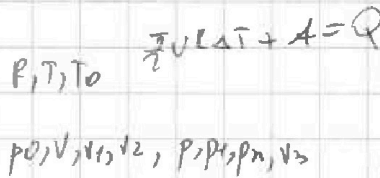 νRΔT + A = Q
P, T, T0
p0, V, V1, V2, p, p1, pn, V3